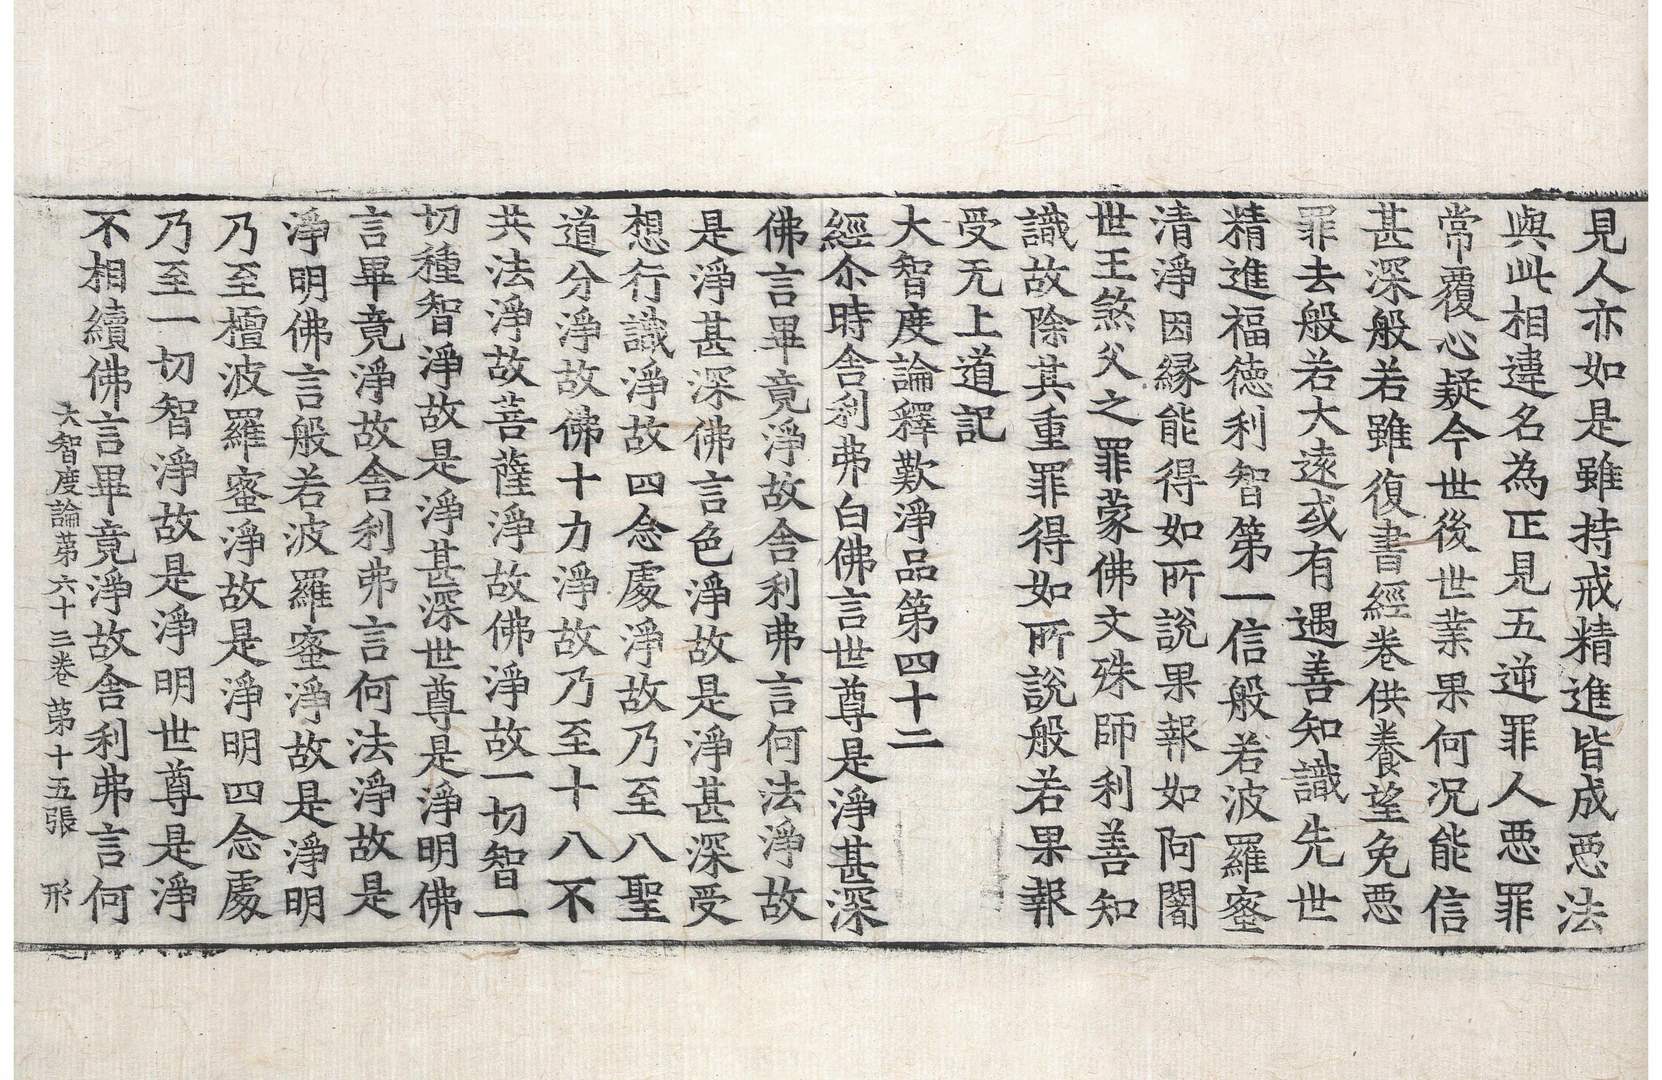 見人亦如是雖持戒精進皆成惡法
與此相違名為正見五逆罪人惡罪
常覆心疑今世後世業果何況能信
甚深般若雖復書經卷供養望免惡
罪去般若大遠或有遇善知識先世
精進福德利智第一信般若波羅蜜
清淨因緣能得如所說果報如阿闍
世王煞父之罪蒙佛文殊師利善知
識故除其重罪得如所說般若果報
受无上道記
大智度論釋歎淨品第四十二
經尒時舍利弗白佛言世尊是淨甚深
佛言畢竟淨故舍利弗言何法淨故
是淨甚深佛言色淨故是淨甚深受
想行識淨故四念處淨故乃至八聖
道分淨故佛十力淨故乃至十八不
共法淨故菩薩淨故佛淨故一切智一
切種智淨故是淨甚深世尊是淨明佛
言畢竟淨故舍利弗言何法淨故是
淨明佛言般若波羅蜜淨故是淨明
乃至檀波羅蜜淨故是淨明四念處
乃至一切智淨故是淨明世尊是淨
不相續佛言畢竟淨故舍利弗言何
大智度論第六十三卷 第十五張 形